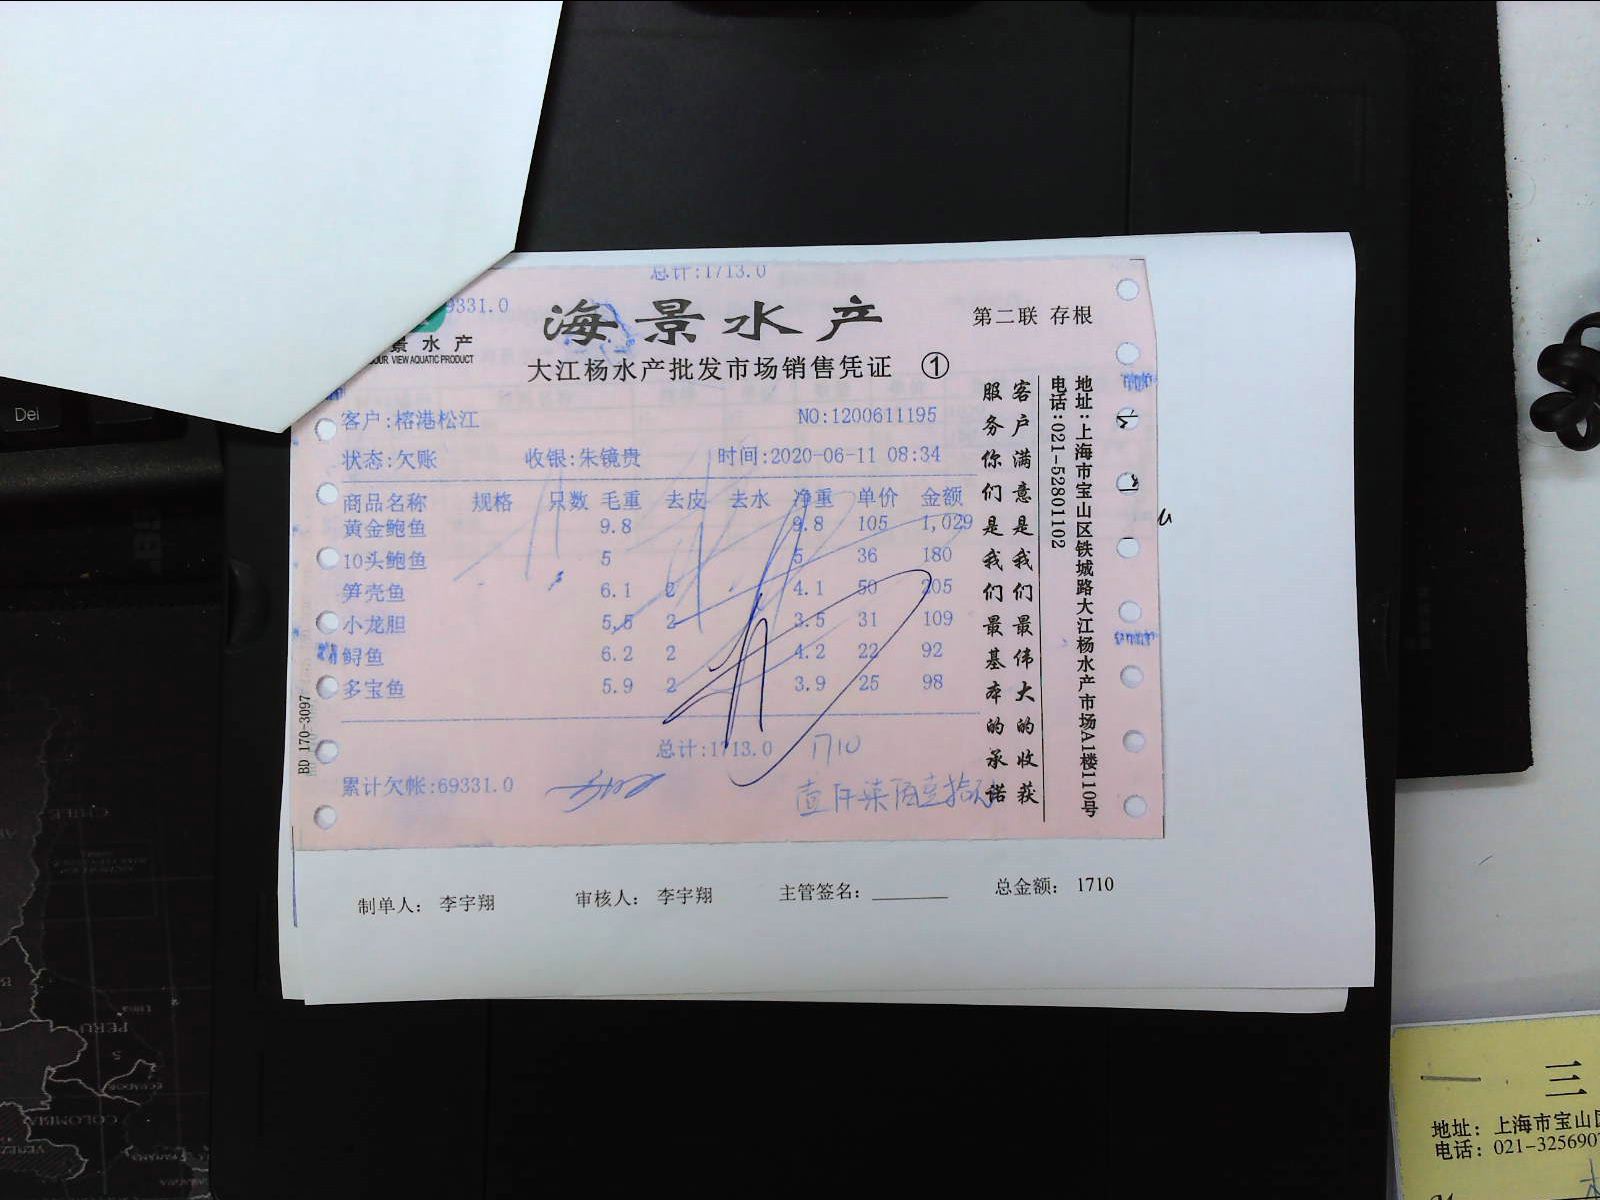 Del
总计:1713.0
9331.0
海景水产
第二联 存根
景水产
OUR VIEW AQUATIC PRODUCT
大江杨水产批发市场销售凭证 ①
客户:榕港松江
NO:1200611195
状态:欠账 收银:朱镜贵 时间:2020-06-11 08:34
商品名称 规格 只数 毛重 去皮 去水 净重 单价 金额
黄金鲍鱼 9.8 9.8 105 1,029
10头鲍鱼 5 5 36 180
笋壳鱼 6.1 2 4.1 50 205
小龙胆 5.5 2 3.5 31 109
鲟鱼 6.2 2 4.2 22 92
多宝鱼 5.9 2 3.9 25 98
总计:1713.0 1710
累计欠帐:69331.0
壹仟柒佰壹拾
客户满意是我们最伟大的收获
服务你们是我们最基本的承诺
地址:上海市宝山区铁城路大江杨水产市场A1楼110号
电话:021-52801102
BD 170-3097
制单人: 李宇翔 审核人: 李宇翔 主管签名: 总金额: 1710
CHILE
PERU
ECUADOR
COLOMBIA
一 三
地址: 上海市宝山区
电话: 021-325690